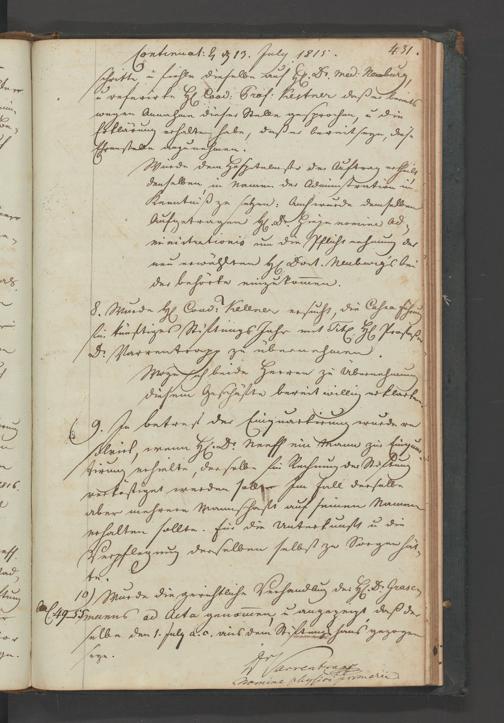 Continuat: d 13. July 1815. 431.
schritte u. fiehle dieselbe auf H. Dr. Med: Neuburg,
u referirte H Coad. Prof. Kestner daß er bereits
wegen Annahme dieser Stelle gesprochen, u. die
Erklärung erhalten habe, daß er bereit seye, diese
Ehrenstelle anzunehmen.
Wurde dem Hospitalmstr der Auftrag ertheilt
denselben, in Namen der Administration in
Kenntniß zu setzen: Auch wurde demselben
Aufgetragen H. Dr. nomine Ad-
ministrationis um die Pflicht nehmung des
neu erwählten H. Doct. Neuburg's bei
der behörde einzukommen.
8. Wurde H Coad: Kellner ersucht, die
für künftiges Stiftungs Jahr mit Tit. H Professor
Dr. Varrentrapp zu übernehmen.
Wozu sich beide Herren zu Übernehmung
diesem Geschäfte bereit willig erklärten.
9. In betreff der Einquartirung wurde ver-
, wenn H. Dr. Neeff ein Mann zu Einquar-
tirung erhalte, derselbe für Rechnung der Stiftung
verköstiget werden solle. Im fall derselbe
aber mehrere Mannschaft auf seinen Namen
erhalten sollte. für die Unterkunft u. die
Verpflegung derselben selbst zu Sorgen hät-
te.
10) Wurde die gerichtliche Verhandlung des H: Dr. Grase-
manns ad Acta genommen, u. angezeigt daß der
selbe den 1. July a. c. aus dem Stiftungshaus gezogen
seye.
Dr Varrentrapp
nomine physici primarii